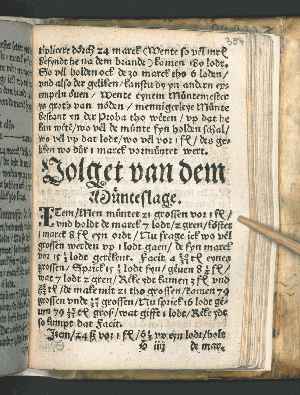 tiplicere dorch 24 marck (Wente so vel mr̃k
befyndt he na dem brande) kamen 180 lodt.
So vel holden ock de 30 marck tho 6 loden/
vnd also der geliken/ kanstu dy yn andern ex-
empeln öuen/ Wente eynem Müntemester
ys groth van nöden/ mennigerleye Münte
bekant vn der Proba tho weten/ vp dat he
kan weten/ wo vel de münte fyn holden schal/
wo vel vp dat lodt/ wo vel vor 1 fl/ des ge-
liken wo dür 1 marck vormüntet wert.
Volget van dem
Münteslage.
Item/ Men müntet 21 grossen vor 1 fl/
vnd holdt de marck 7 lodt/ 2 gren/ köstet
1 marck 8 fl eyn ordt. Nu frage ick wo vel
grossen werden vp 1 lodt gaen/ de fyn marck
vor 15 lodt gerekent. Facit 4 eynes
grossen/ Sprick 15 lodt fyn/ geuen 8 fl/
wat 7 lodt 2 gren/ Rike ydt kamen 3 fl vnd
de make mit 21 tho grossen/ kamen 79
grossen vnde grossen/ Nu sprick 16 lodt ge-
uen 79 gros/ wat gifft 1 lodt/ Rike ydt
so kumpt dat Facit.
Item/ 24 ß vor 1 fl/ 6 vp eyn lodt/ holt
de mar-